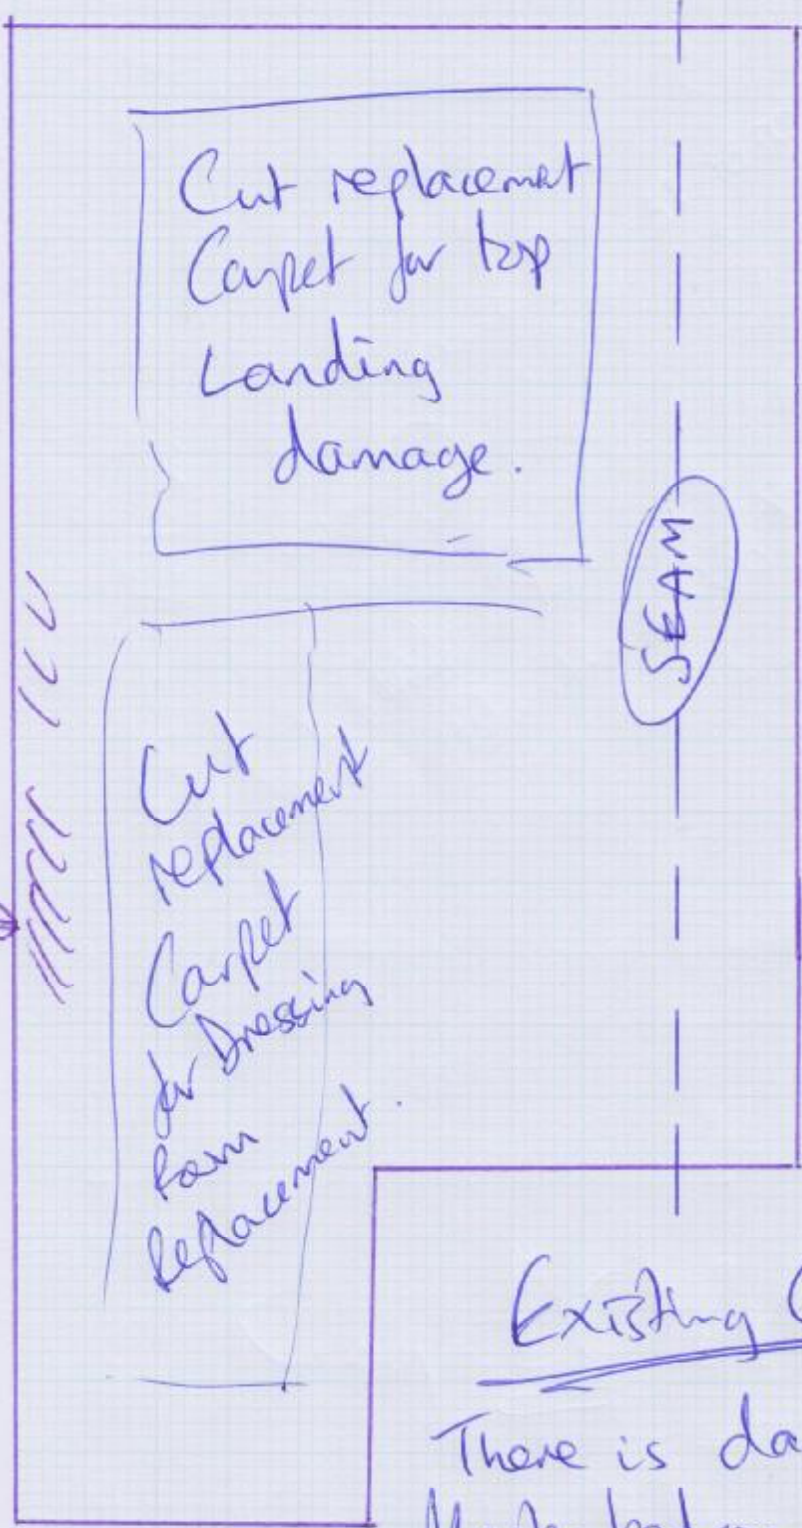 Cut replacement
Carpet for top
Landing
damage.
SEAM
Cut
replacement
Carpet
for Dressing
Room
Replacement.
Existing
There is da